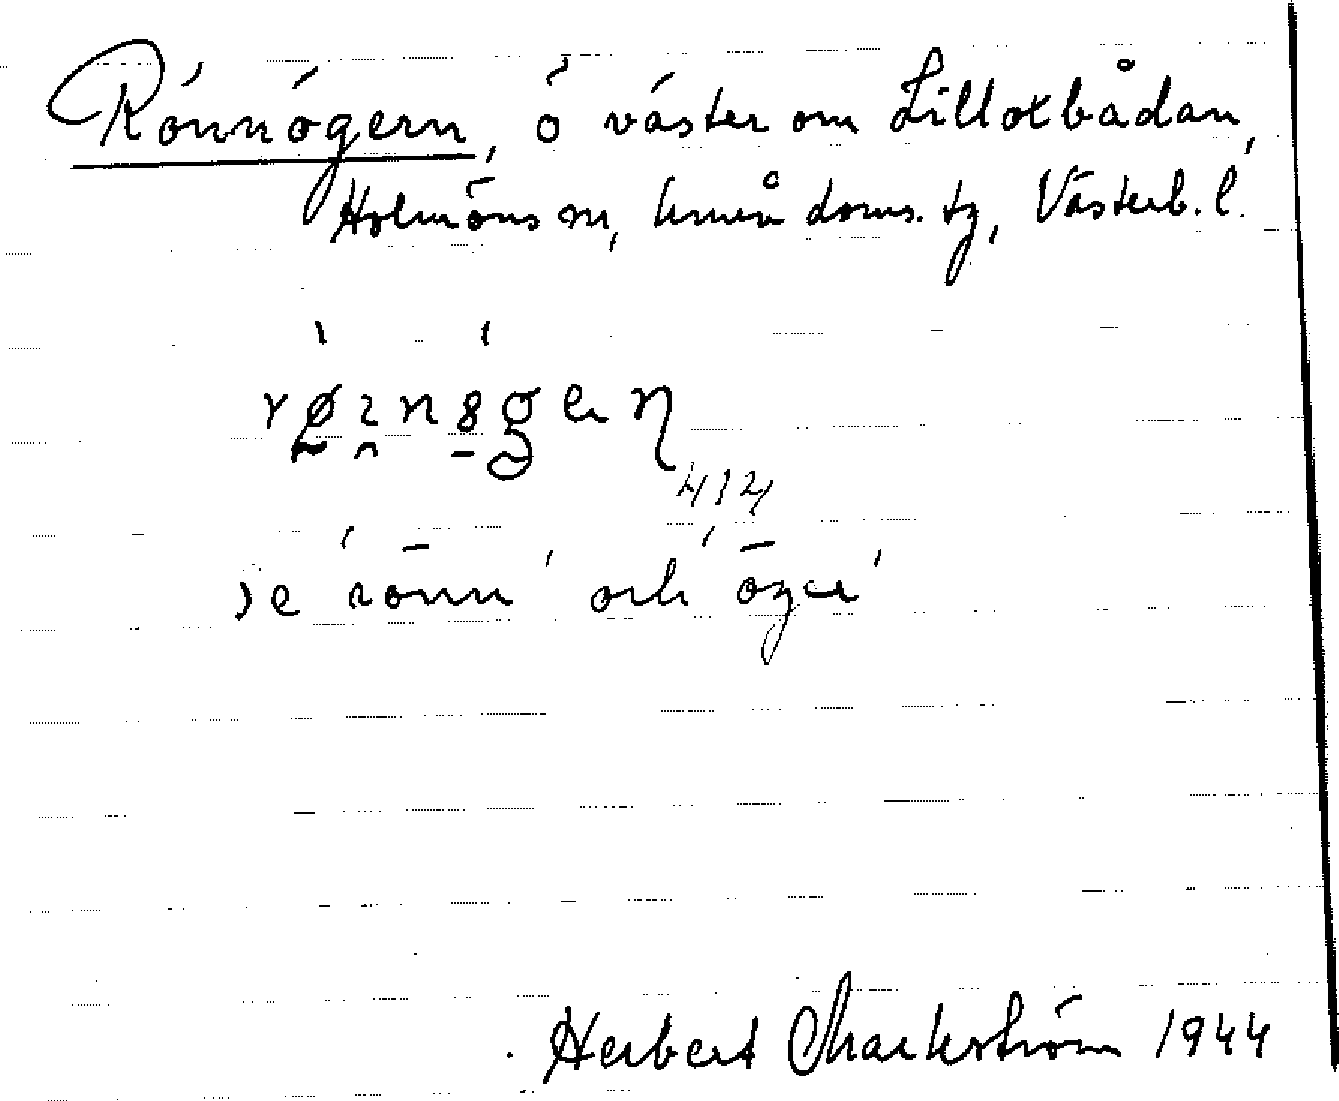 Rönnögern, ö väster om Lillotbådan,
Holmöns sn, Umeå doms. tg, Västerb. l.
414
se 'rönn' och 'öger'
Herbert Markström 1944